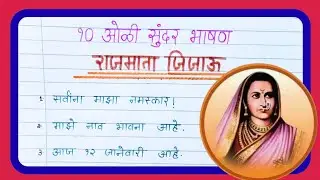 १० ओळी सुंदर भाषण
राजमाता जिजाऊ
१ सर्वांना माझा नमस्कार!
२ माझे नाव भावना आहे.
३ आज १२ जानेवारी आहे.